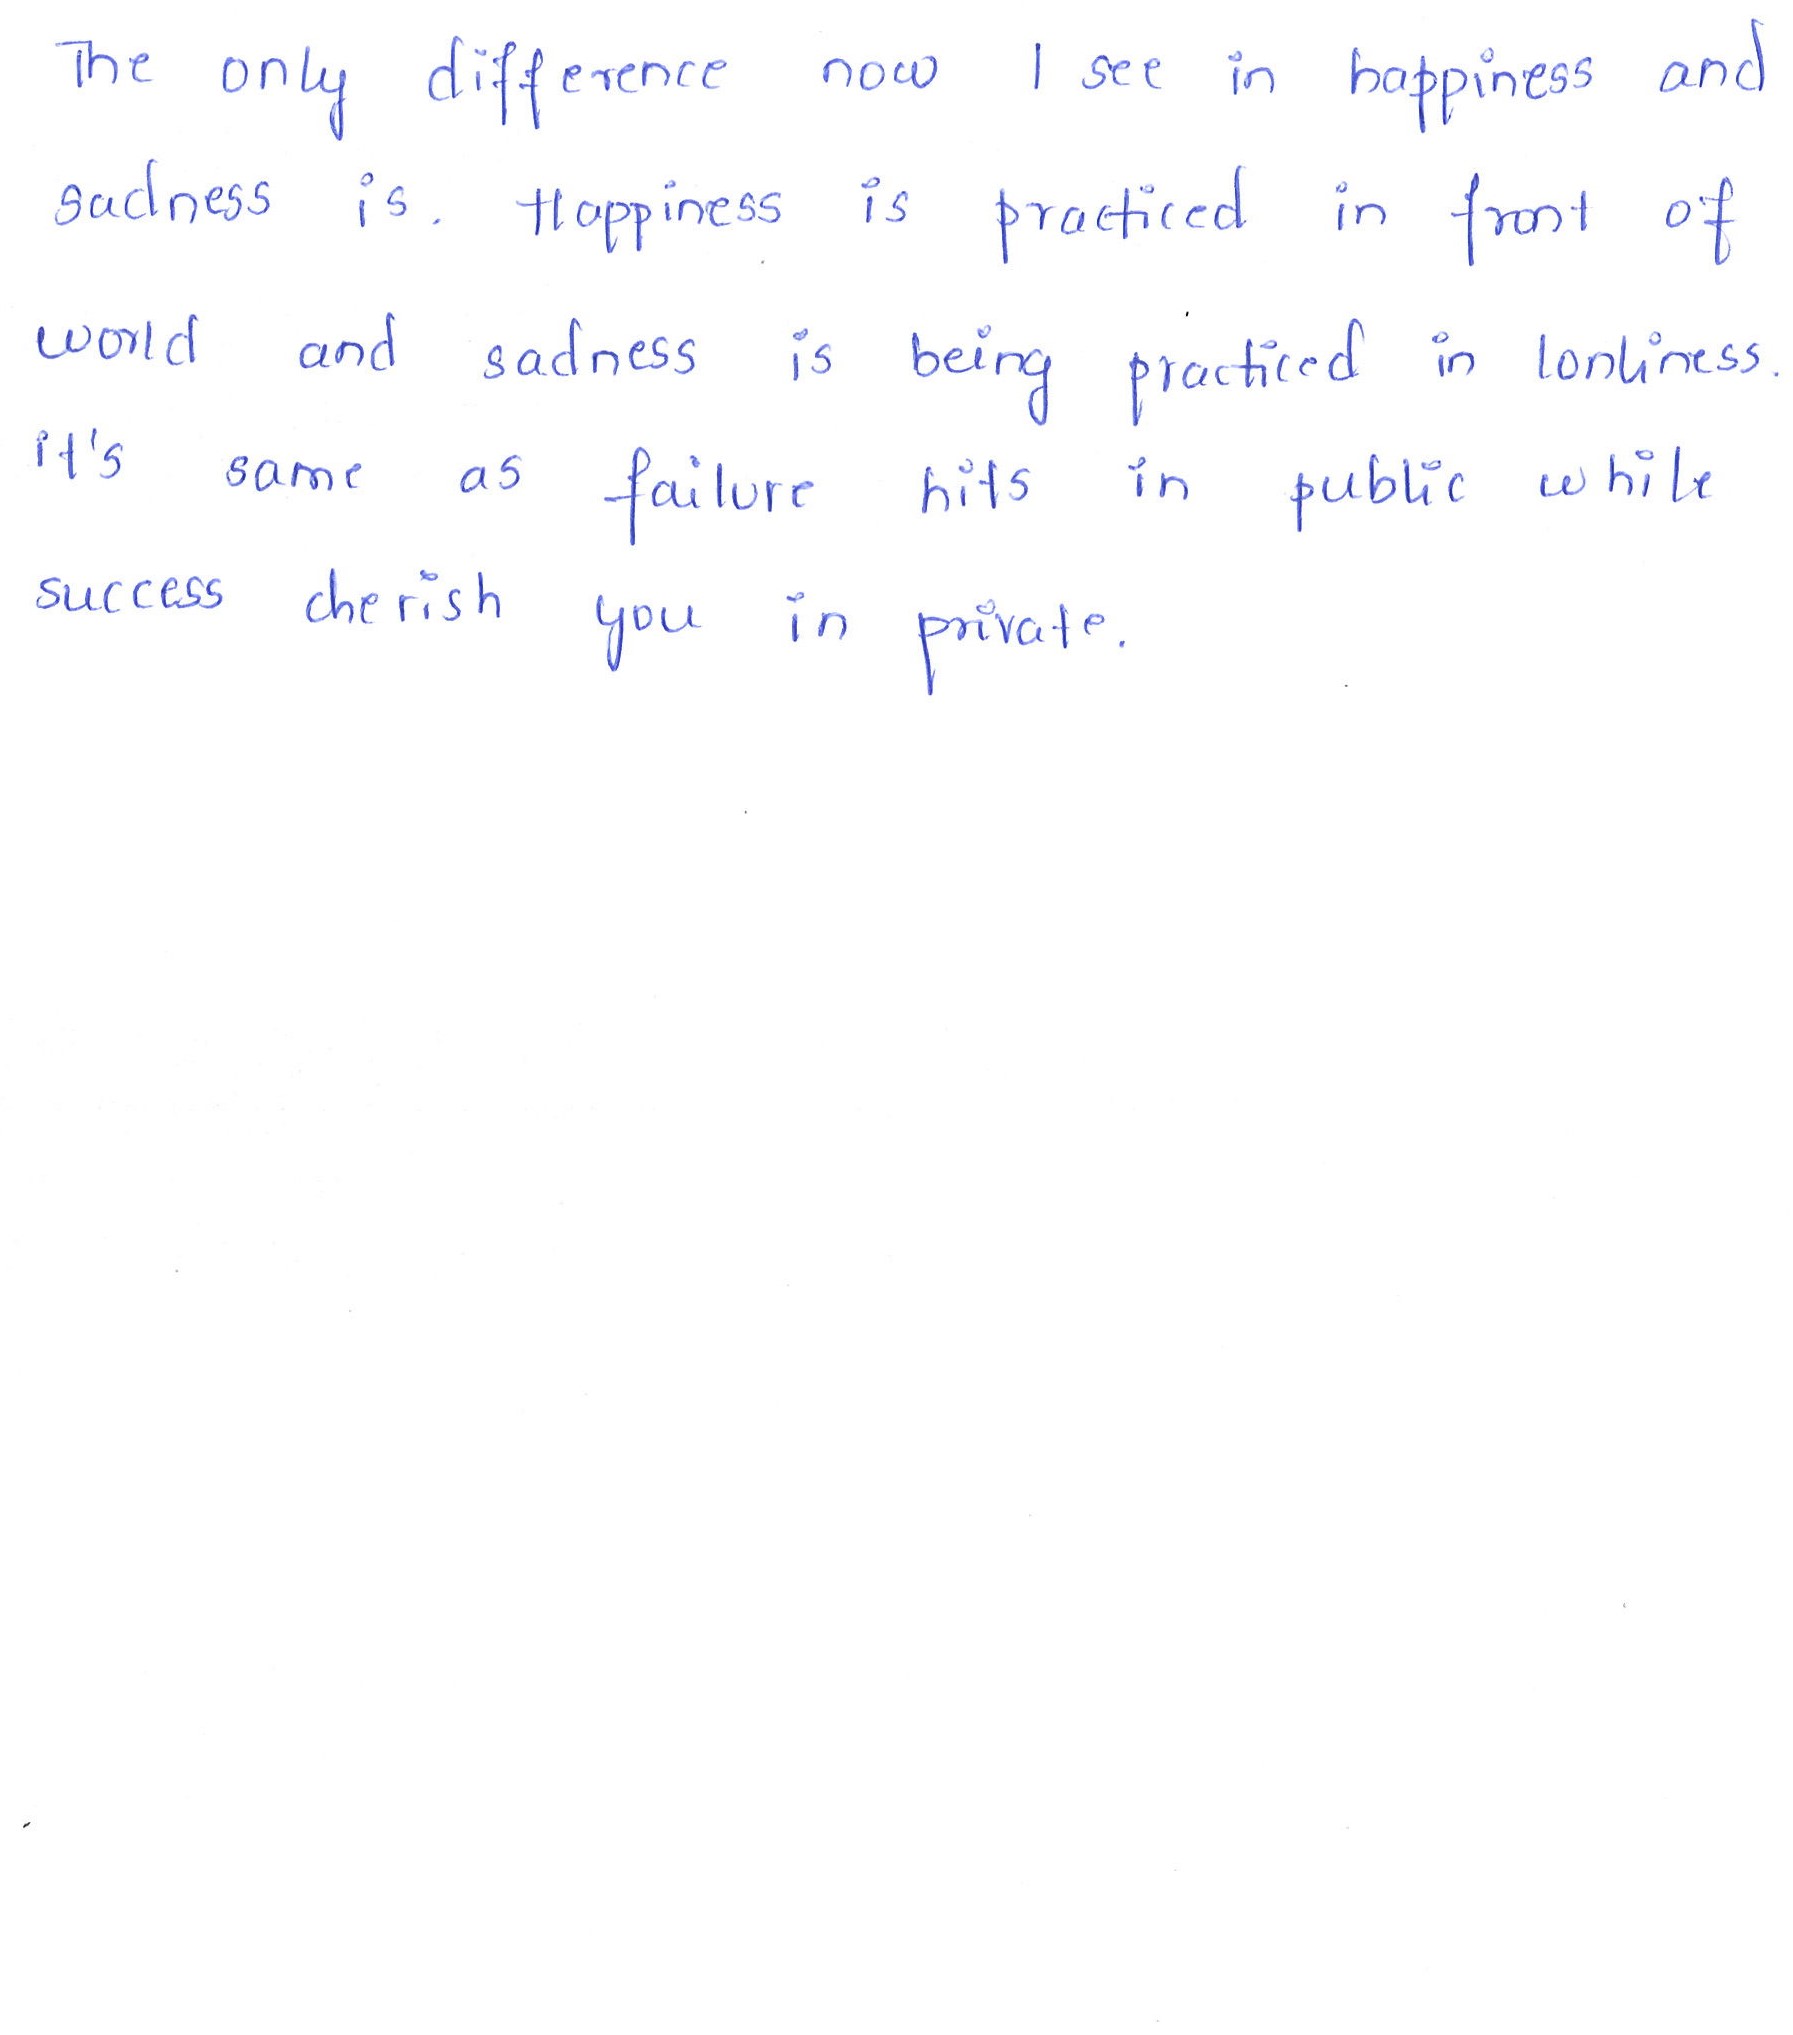 The only difference now I see in happiness and
sadness is. Happiness is practiced in front of
world and sadness is being practiced in lonliness.
it's same as failure hits in public while
success cherish you in private.